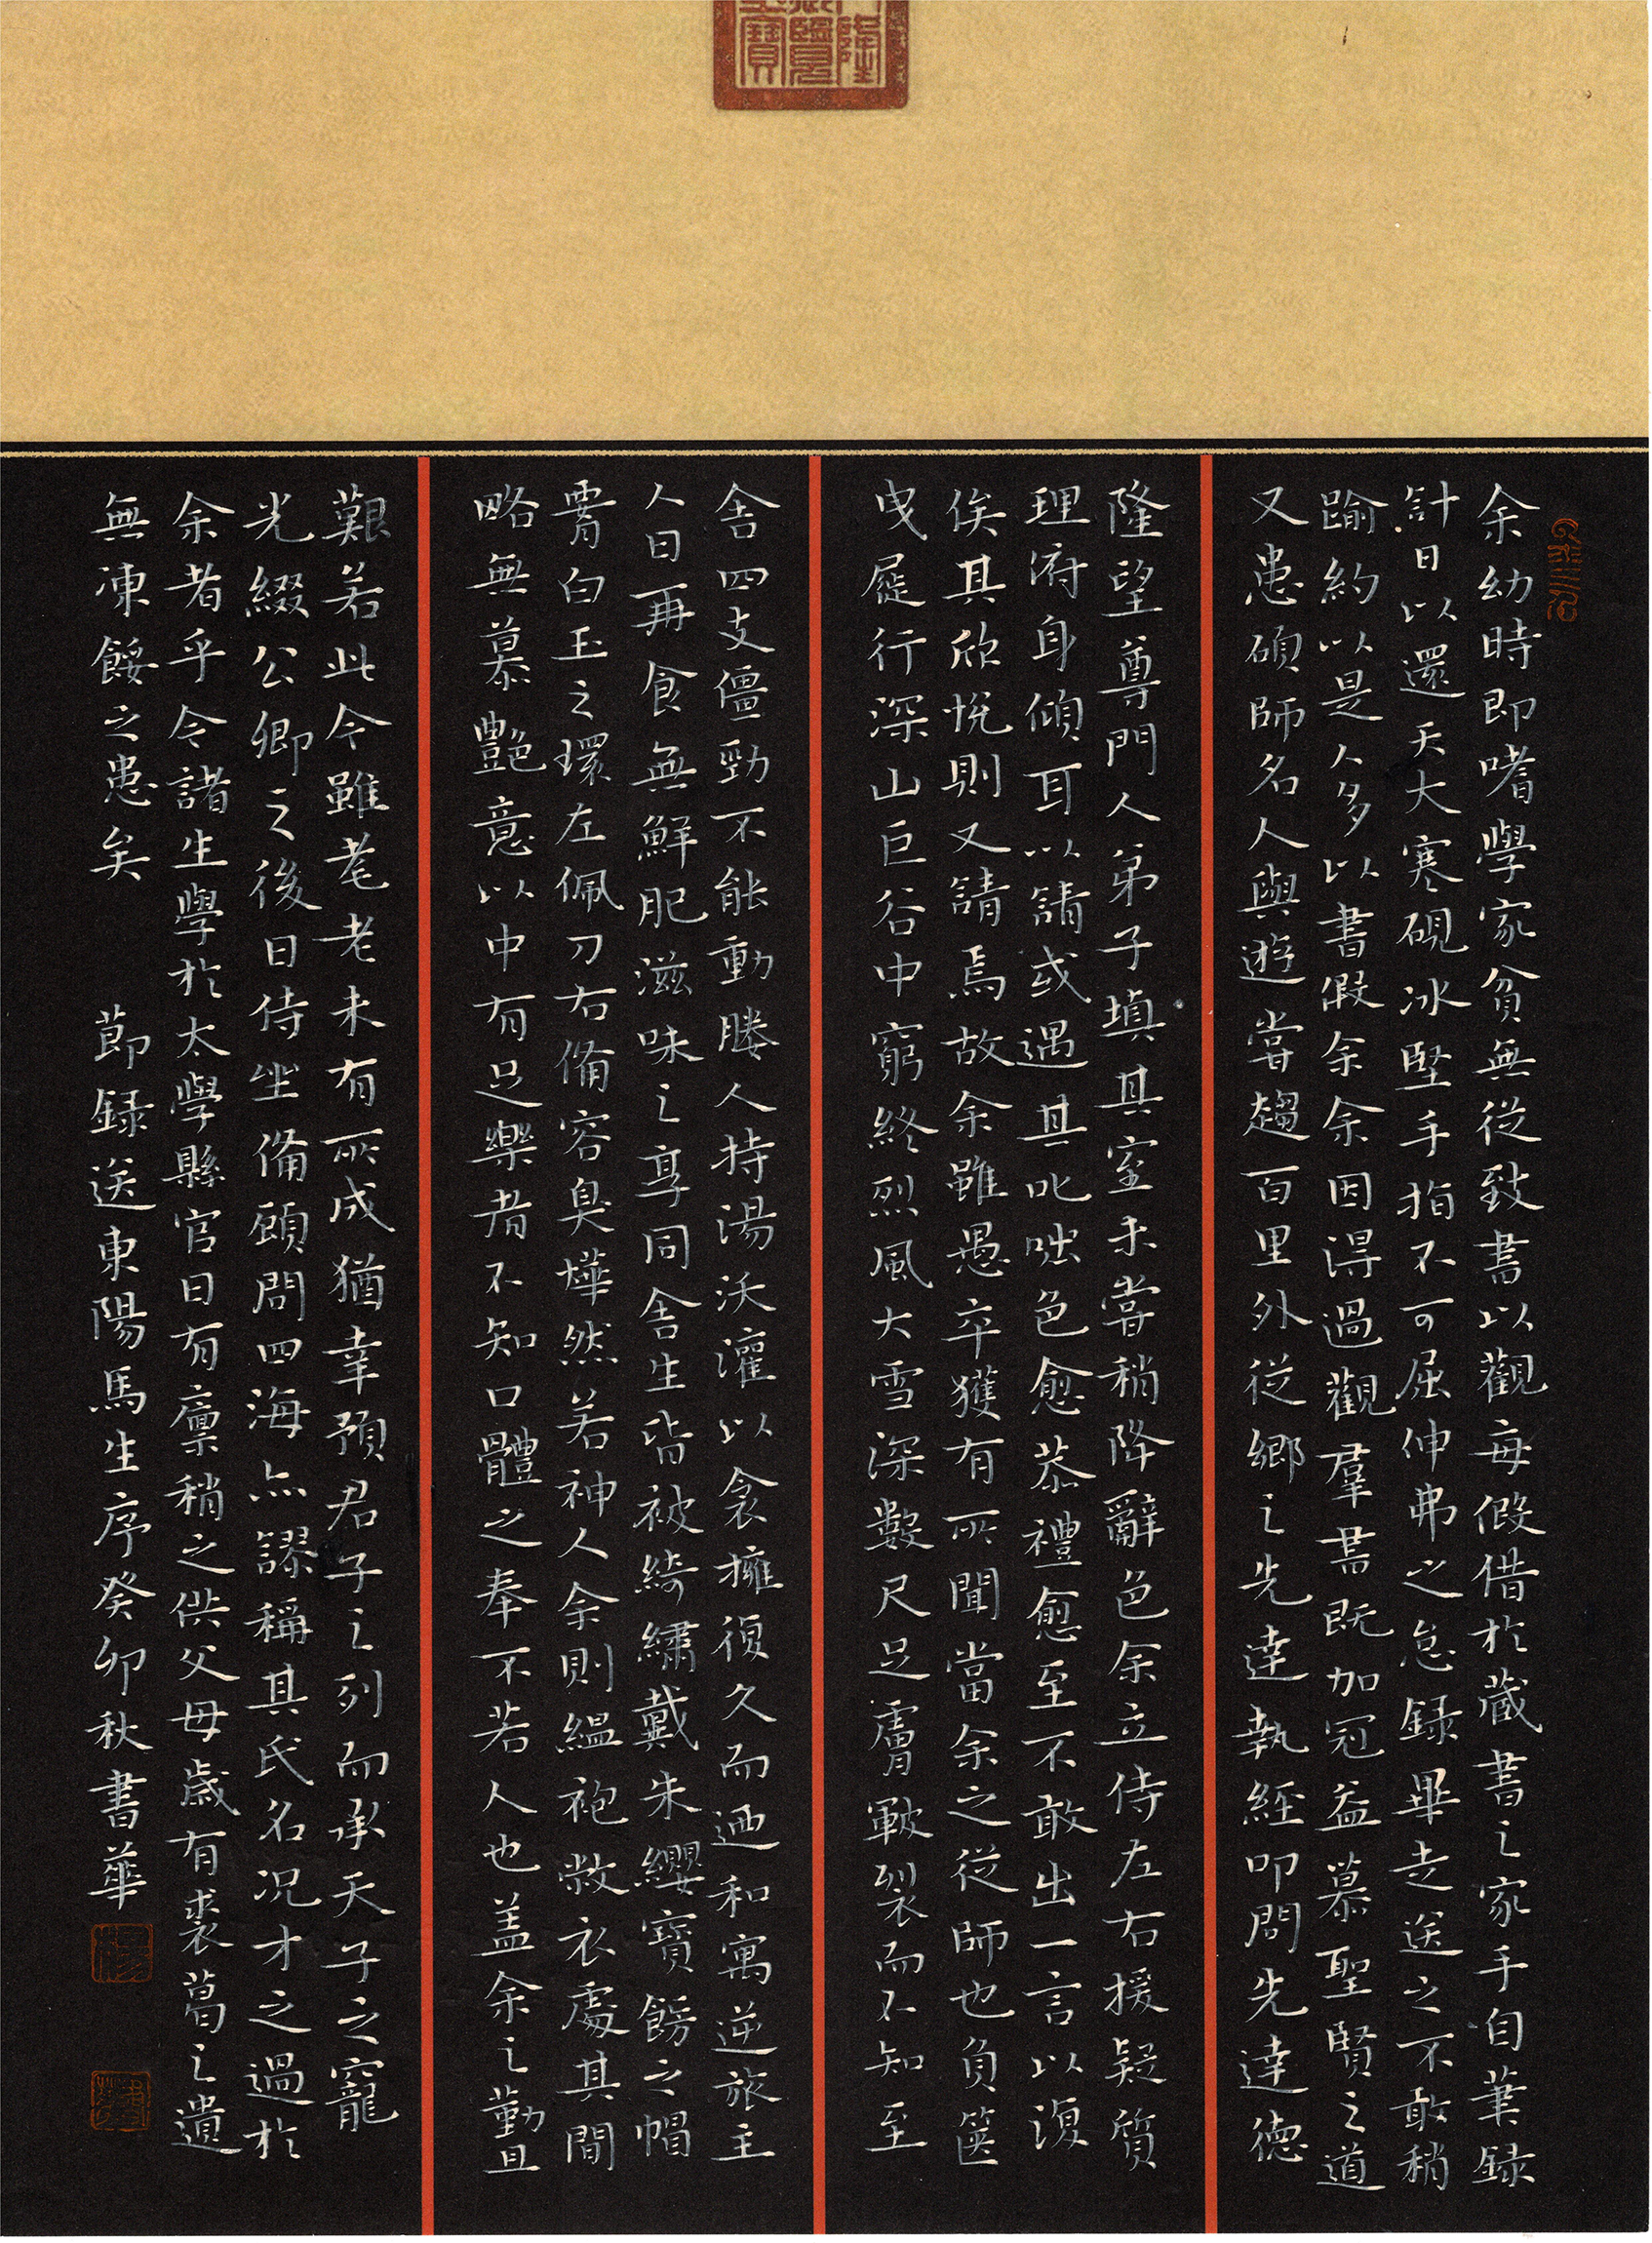 余幼時即嗜學家貧無從致書以觀每假借於藏書之家手自筆録
計日以還天大寒硯冰堅手指不可屈伸弗之怠録畢走送之不敢稍
踰約以是人多以書假余余因得過觀羣書既加冠益慕聖賢之道
又患碩師名人與遊嘗趨百里外從鄉之先達執經叩問先達德
隆望尊門人弟子填其室未嘗稍降辭色余立侍左右援疑質
理府身傾耳以請或遇其叱咄色愈恭禮愈至不敢出一言以復
俟其欣悅則又請焉故余雖愚卒獲有所聞當余之從師也負篋
曳屣行深山巨谷中窮終烈風大雪深數尺足膚皸裂而不知至
舍四支僵勁不能動媵人持湯沃灌以衾擁復久而迺和寓逆旅主
人日再食無鮮肥滋味之享同舍生皆被綺繡戴朱纓寶餝之帽
署白玉之環左佩刀右備容臭燁然若神人余則縕袍敝衣處其間
略無慕艷意以中有足樂者不知口體之奉不若人也盖余之勤且
艱若此今雖耄老未有所成猶幸預君子之列而承天子之寵
光綴公卿之後日侍坐備顧問四海亦謬稱其氏名况才之過於
余者乎今諸生學於太學縣官日有廪稍之供父母歲有裘葛之遺
無凍餒之患矣　節録送東陽馬生序癸卯秋書華